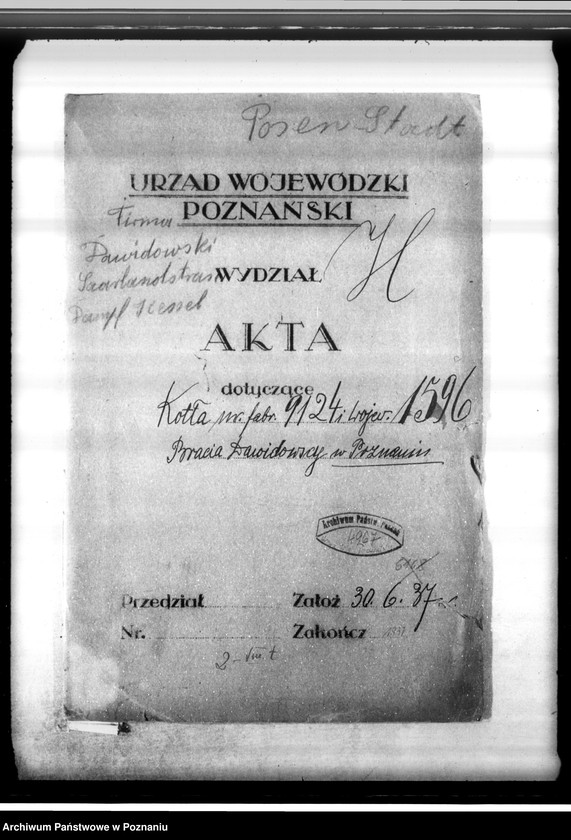 Posen-Stadt
URZĄD WOJEWÓDZKI
POZNAŃSKI
Firma
Dawidowski
Saarlandstras
Dampf Kessel
WYDZIAŁ H
AKTA
dotyczące
Kotła nr. fabr. 9124 i wojew. 1596
Bracia Dawidowscy w Poznaniu
Archiwum Państw. Poznań
4967
Przedział
Założ 30. 6. 37 r.
Nr.
Zakończ 1937
Archiwum Państwowe w Poznaniu